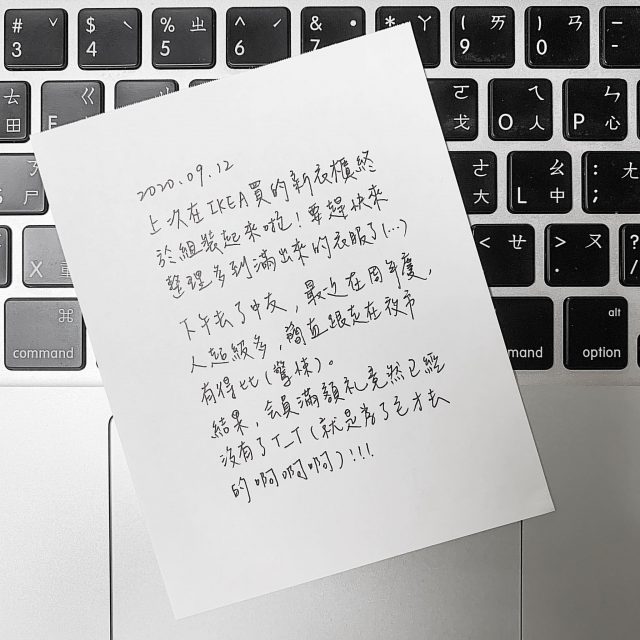 # 3
$ ˇ 4
% ㄓ 5
^ ˊ 6
& ˙ 7
* ㄚ
( ㄞ 9
) ㄢ 0
-
ㄊ 田
ㄍ E
ㄛ 戈
ㄟ O 人
ㄣ P 心
ㄋ S 尸
ㄠ 大
ㄤ 中 L
: ㄤ ;
X 重
< ㄝ ,
> ㄡ .
? /
⌘ command
command
alt option
2020.09.12
上次在IKEA買的新衣櫃終
於組裝起來啦！要趕快來
整理多到滿出來的衣服了(...)
下午去了中友，最近在周年慶，
人超級多，簡直跟走在夜市
有得比(驚悚)。
結果，会員滿額礼竟然已經
沒有了T_T(就是為了它才去
的啊啊啊)!!!